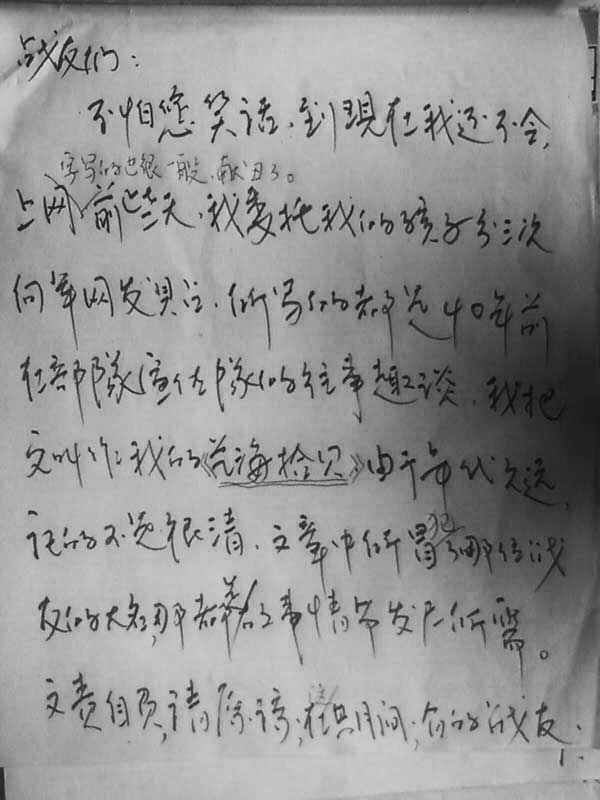 战友们:
不怕您笑话,到现在我还不会,
字写的也很一般,献丑了。
上网,前些天,我委托我的孩子分三次
向军网发贴,所写的都是40年前
在部隊宣传隊的往事趣谈,我把
文叫作:我的《艺海拾贝》由于年代久远,
记的不是很清,文章中所冒犯了哪位战
友的大名,那都是故事情节发展所需。
文责自负,请原谅;在此期间;有的战友,
1.